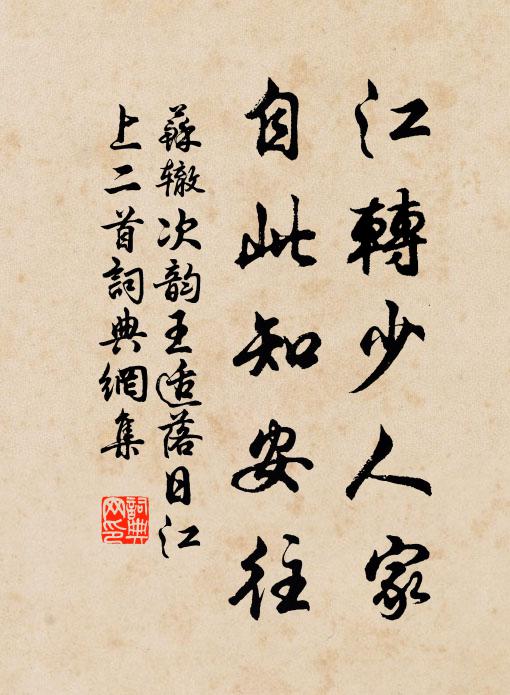 江轉少人家
自此知安往
蘇辙次韵王适落日江
上二首詞典網集
詞典
网印